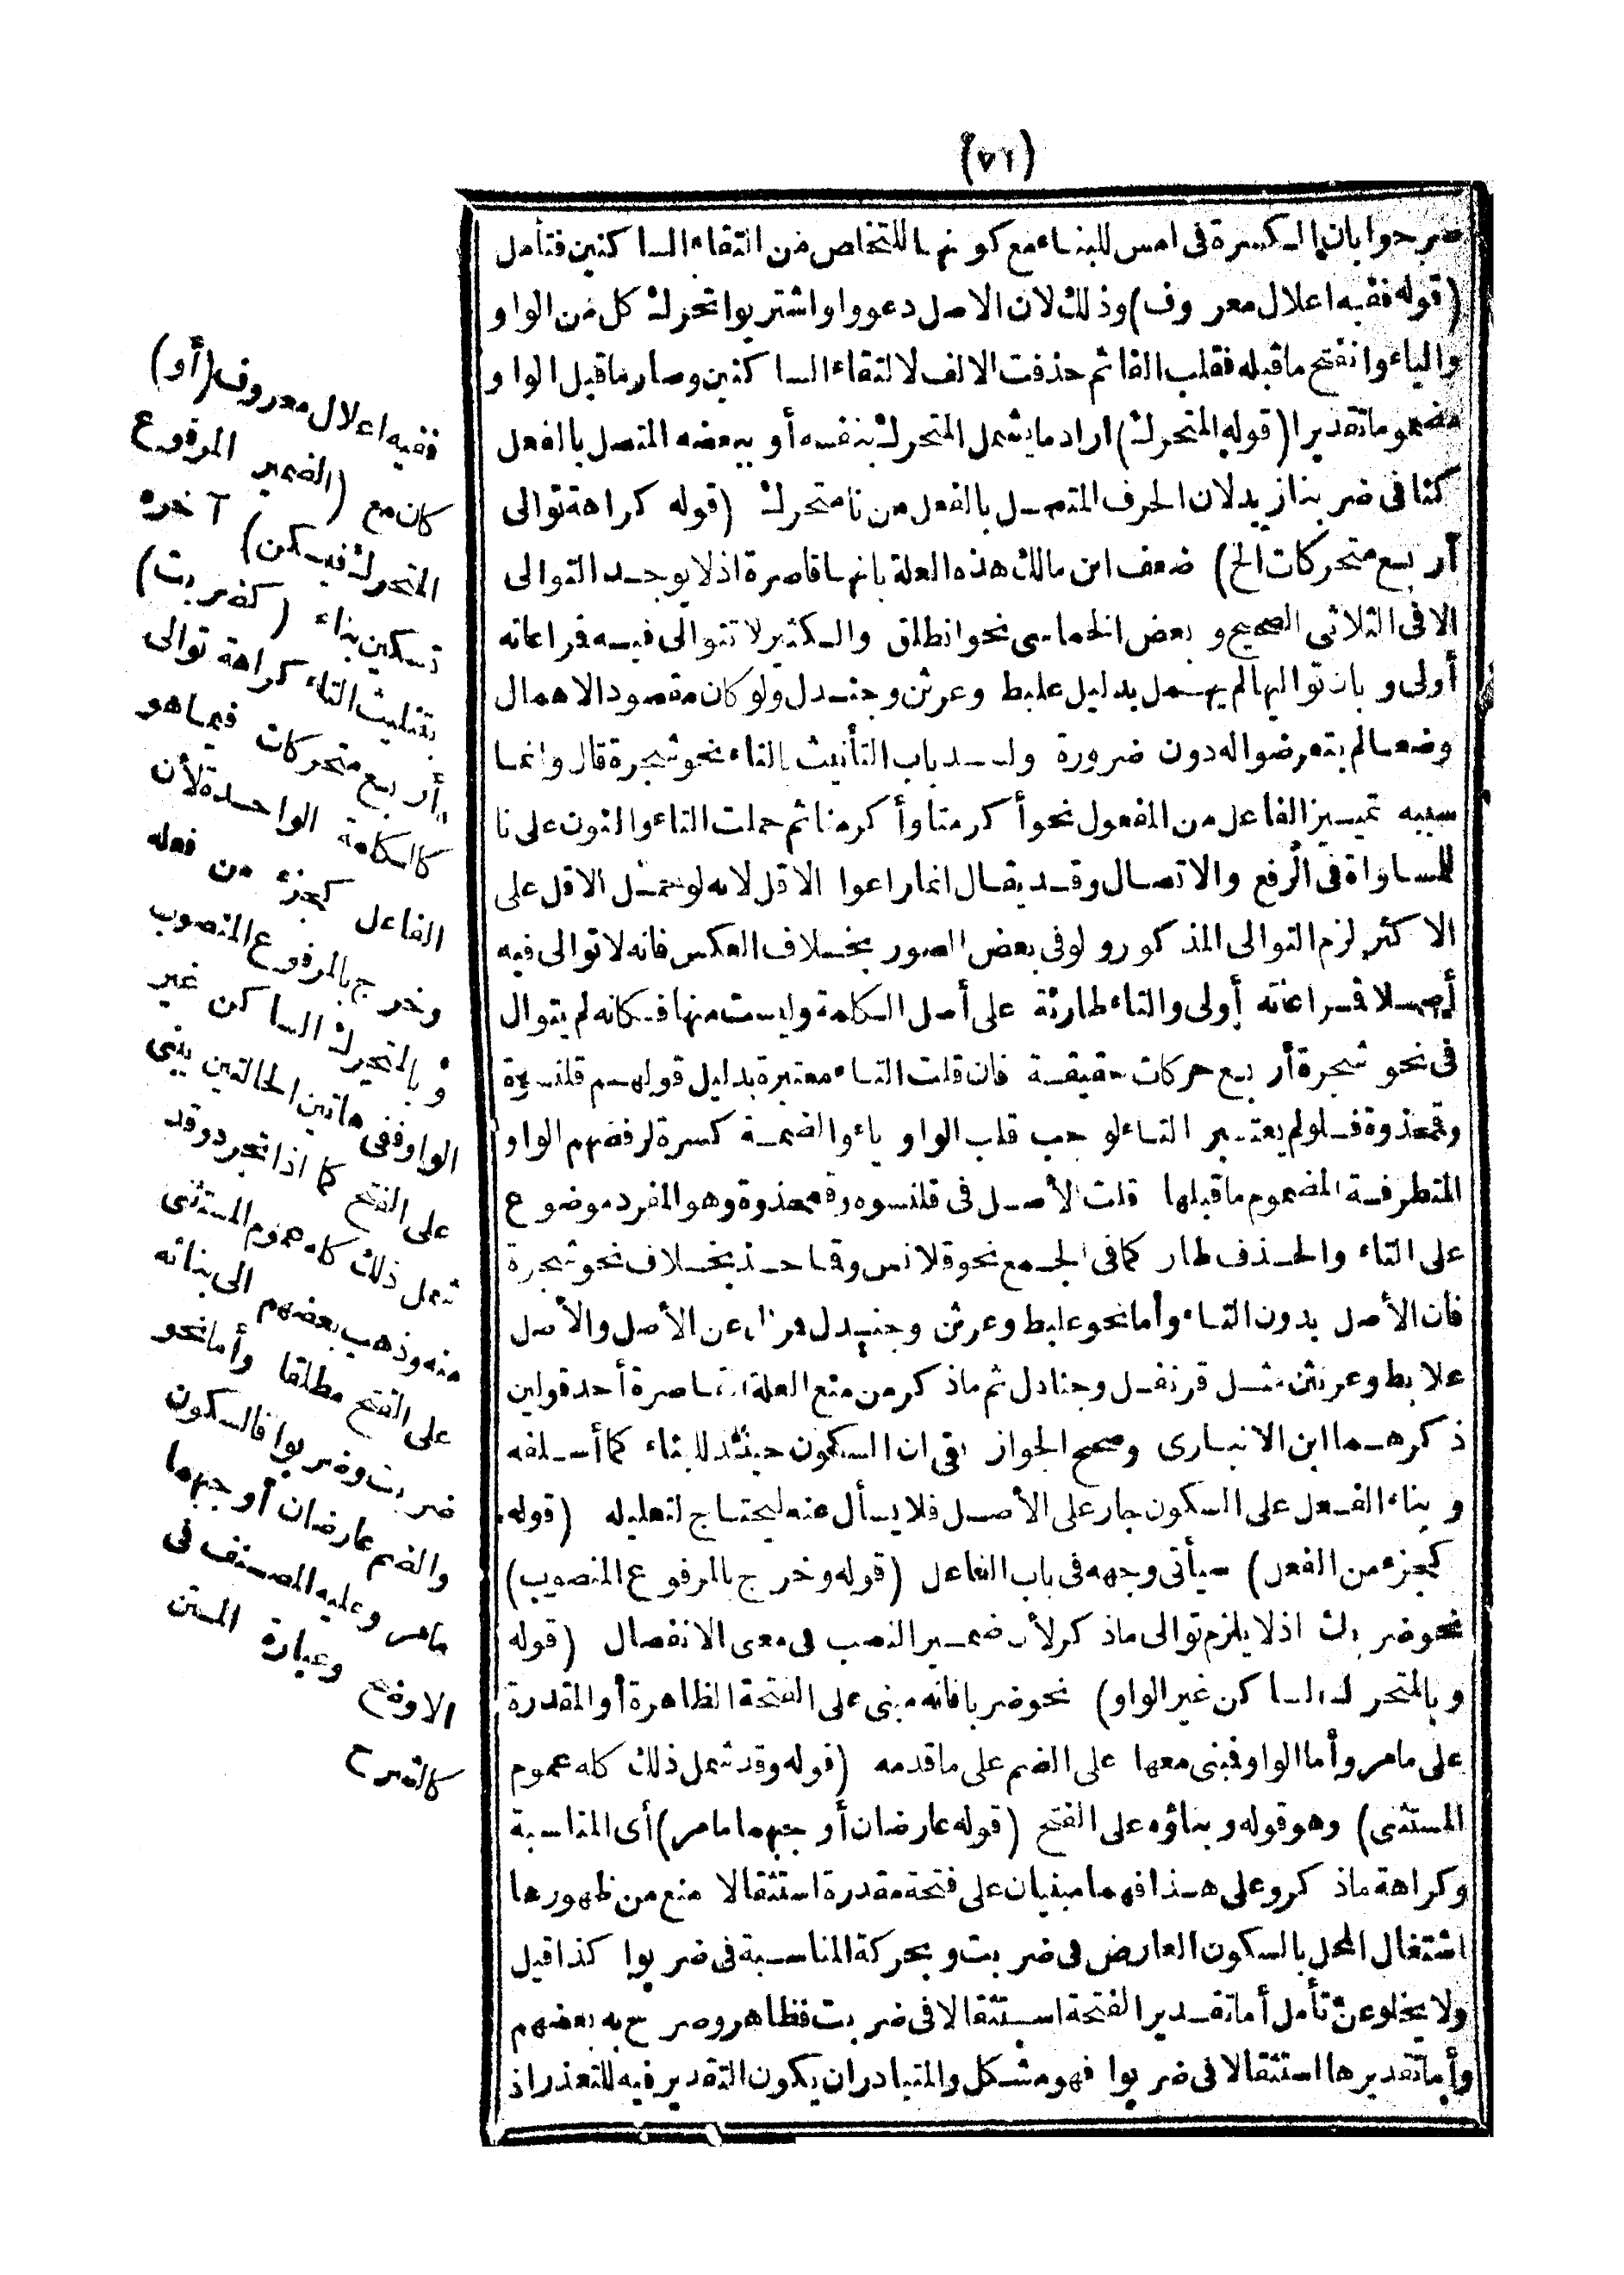 (٧١)
صرحوا بان الكسرة فى امس للبناء مع كونها للتخلص من التقاء الساكنين فتأمل
(قوله ففيه اعلال معروف) وذلك لان الاصل دعووا واشتريوا تحرك كل من الواو
والياء وانفتح ماقبله فقلب الفا ثم حذفت الالف لالتقاء الساكنين وصار ماقبل الواو
مضموما تقديرا (قوله المتحرك) اراد ما يشمل المتحرك بنفسه أو ببعضه المتصل بالفعل
كنا فى ضربنا زيد لان الحرف المتصل بالفعل من نا متحرك (قوله كراهة توالى
أربع متحركات الخ) ضعف ابن مالك هذه العلة بانها قاصرة اذ لا يوجد التوالى
الا فى الثلاثى الصحيح و بعض الخماسى نحو انطلق والكثير لا تتوالى فيه فراعاته
أولى و بان تواليها لم يهمل بدليل علبط وعرتن وجندل ولو كان مقصود الاهمال
وضعا لم يتعرضوا له دون ضرورة ولسد باب التأنيث بالتاء نحو شجرة قال وانما
سببه تمييز الفاعل من المفعول نحو أكرمنا وأكرمنا ثم حملت التاء والنون على نا
للمساواة فى الرفع والاتصال وقد يقال انما راعوا الاقل لانه لو حمل الاقل على
الاكثر لزم التوالى المذكور ولو فى بعض الصور بخلاف العكس فانه لا توالى فيه
أصلا فراعاته أولى والتاء طارئة على أصل الكلمة وليست منها فكانه لم يتوال
فى نحو شجرة أربع حركات حقيقة فان قلت التاء معتبرة بدليل قولهم قلنسوة
وقمحذوة فلو لم يعتبر التاء لوجب قلب الواو ياء والضمة كسرة لرفضهم الواو
المتطرفة المضموم ماقبلها قلت الأصل فى قلنسوه وقمحذوة وهو المفرد موضوع
على التاء والحذف طار كما فى الجمع نحو قلانس وقاحذ بخلاف نحو شجرة
فان الأصل بدون التاء وأما نحو علبط وعرتن وجندل فزال عن الأصل والأصل
علابط وعرنتن مثل قرنفل وجنادل ثم ماذكر من منع العلة القاصرة أحد قولين
ذكرهما ابن الانبارى وصحح الجواز بقى ان السكون حينئذ للبناء كما أسلفه
و بناء الفعل على السكون جار على الأصل فلا يسأل عنه ليحتاج لتعليله (قوله
كجزء من الفعل) سيأتى وجهه فى باب الفاعل (قوله وخرج بالمرفوع المنصوب)
نحو ضربك اذ لا يلزم توالى ماذكر لأن ضمير النصب فى معنى الانفصال (قوله
و بالمتحرك الساكن غير الواو) نحو ضربا فانه مبنى على الفتحة الظاهرة أو المقدرة
على مامر وأما الواو فيبنى معها على الضم على ماقدمه (قوله وقد شمل ذلك كله عموم
المستثنى) وهو قوله و بناؤه على الفتح (قوله عارضان أوجبهما مامر) أى المناسبة
وكراهة ماذكر وعلى هذا فهما مبنيان على فتحة مقدرة استثقالا منع من ظهورها
اشتغال المحل بالسكون العارض فى ضربت و بحركة المناسبة فى ضربوا كذا قيل
ولا يخلو عن تأمل أما تقدير الفتحة استثقالا فى ضربت فظاهر وصرح به بعضهم
وأما تقديرها استثقالا فى ضربوا فهو مشكل والمتبادر ان يكون التقدير فيه للتعذر اذ
ففيه اعلال معروف (أو)
كان مع (الضمير المرفوع
المتحرك فيسكن) آخره
تسكين بناء (كضربت)
بتثليث التاء كراهة توالى
أربع متحركات فيما هو
كالكلمة الواحدة لأن
الفاعل كجزء من فعله
وخرج بالمرفوع المنصوب
و بالمتحرك الساكن غير
الواو ففى هاتين الحالتين يبنى
على الفتح كما اذا تجرد وقد
شمل ذلك كله عموم المستثنى
منه وذهب بعضهم الى بنائه
على الفتح مطلقا وأما نحو
ضربت وضربوا فالسكون
والضم عارضان أوجبهما
مامر وعليه المصنف فى
الاوضح وعبارة المتن
كالشرح